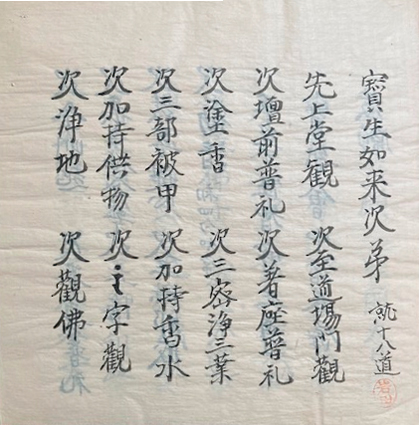 寶生如来次弟 就十八道
先上堂觀 次至道場門觀
次壇前普礼 次著座普礼
次塗香 次三密浄三業
次三部被甲 次加持香水
次加持供物 次字觀
次浄地 次觀佛